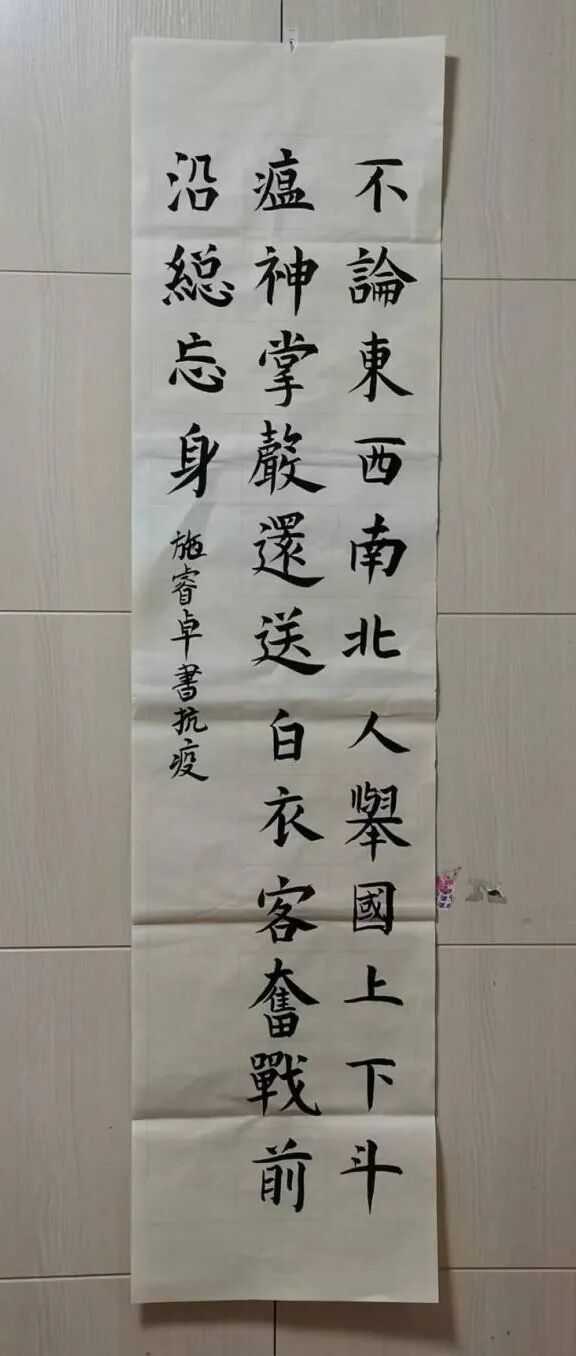 不論東西南北人舉國上下斗
瘟神掌聲還送白衣客奮戰前
沿總忘身
施睿卓書抗疫